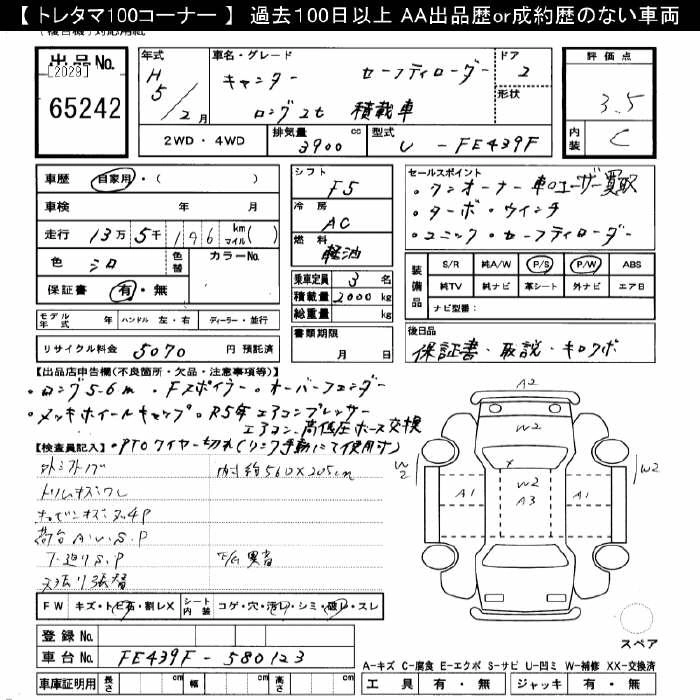 【 トレタマ100コーナー 】 過去100日以上 AA出品歴or成約歴のない車両
出品No.
[2029]
65242
年式
H 5 / 2月
車名・グレード
キャンター セーフティローダー
ロング 2t 積載車
ドア
2
形状
評価点
3.5
内装 C
2WD・4WD
排気量 3900 cc
型式 U - FE439F
車歴 自家用・( )
車検 年 月
走行 13万 5千 196 km マイル( )
色 シロ 色替 カラーNo.
保証書 有・無
モデル年式 年 ハンドル 左・右 ディーラー・並行
リサイクル料金 5070 円 預託済
シフト F5
冷房 AC
燃料 軽油
乗車定員 3 名
積載量 2000 kg
総重量 kg
書類期限
月 日
セールスポイント
・ワンオーナー車のユーザー買取
・ターボ・ウインチ
・ユニック・セーフティローダー
装備品
S/R 純A/W P/S P/W ABS
純TV 純ナビ 革シート 外ナビ エアB
ナビ型番:
後日品
保証書・取説・キロクボ
【出品店申告欄(不良箇所・欠品・注意事項等)】
・ロング5.6m ・Fスポイラー・オーバーフェンダー
・メッキホイールキャップ・R5年 エアコンプレッサー
エアコン高低圧ホース交換
【検査員記入】・PTOワイヤー切れ(リンク手動にて使用可)
内寸 約560×205cm
トリムキズワレ
荷台A.U.S.P
下廻りS.P
FW キズ・トビ石・割レX
シート内装 コゲ・穴・汚レ・シミ・破レ・スレ
登録No.
車台No. FE439F - 580123
車庫証明用 長さ cm 幅 cm 高さ cm
A2
W2
W2
W2
W2
A3
A1
A1
スペア
A-キズ C-腐食 E-エクボ S-サビ U-凹ミ W-補修 XX-交換済
工具 有・無 ジャッキ 有・無